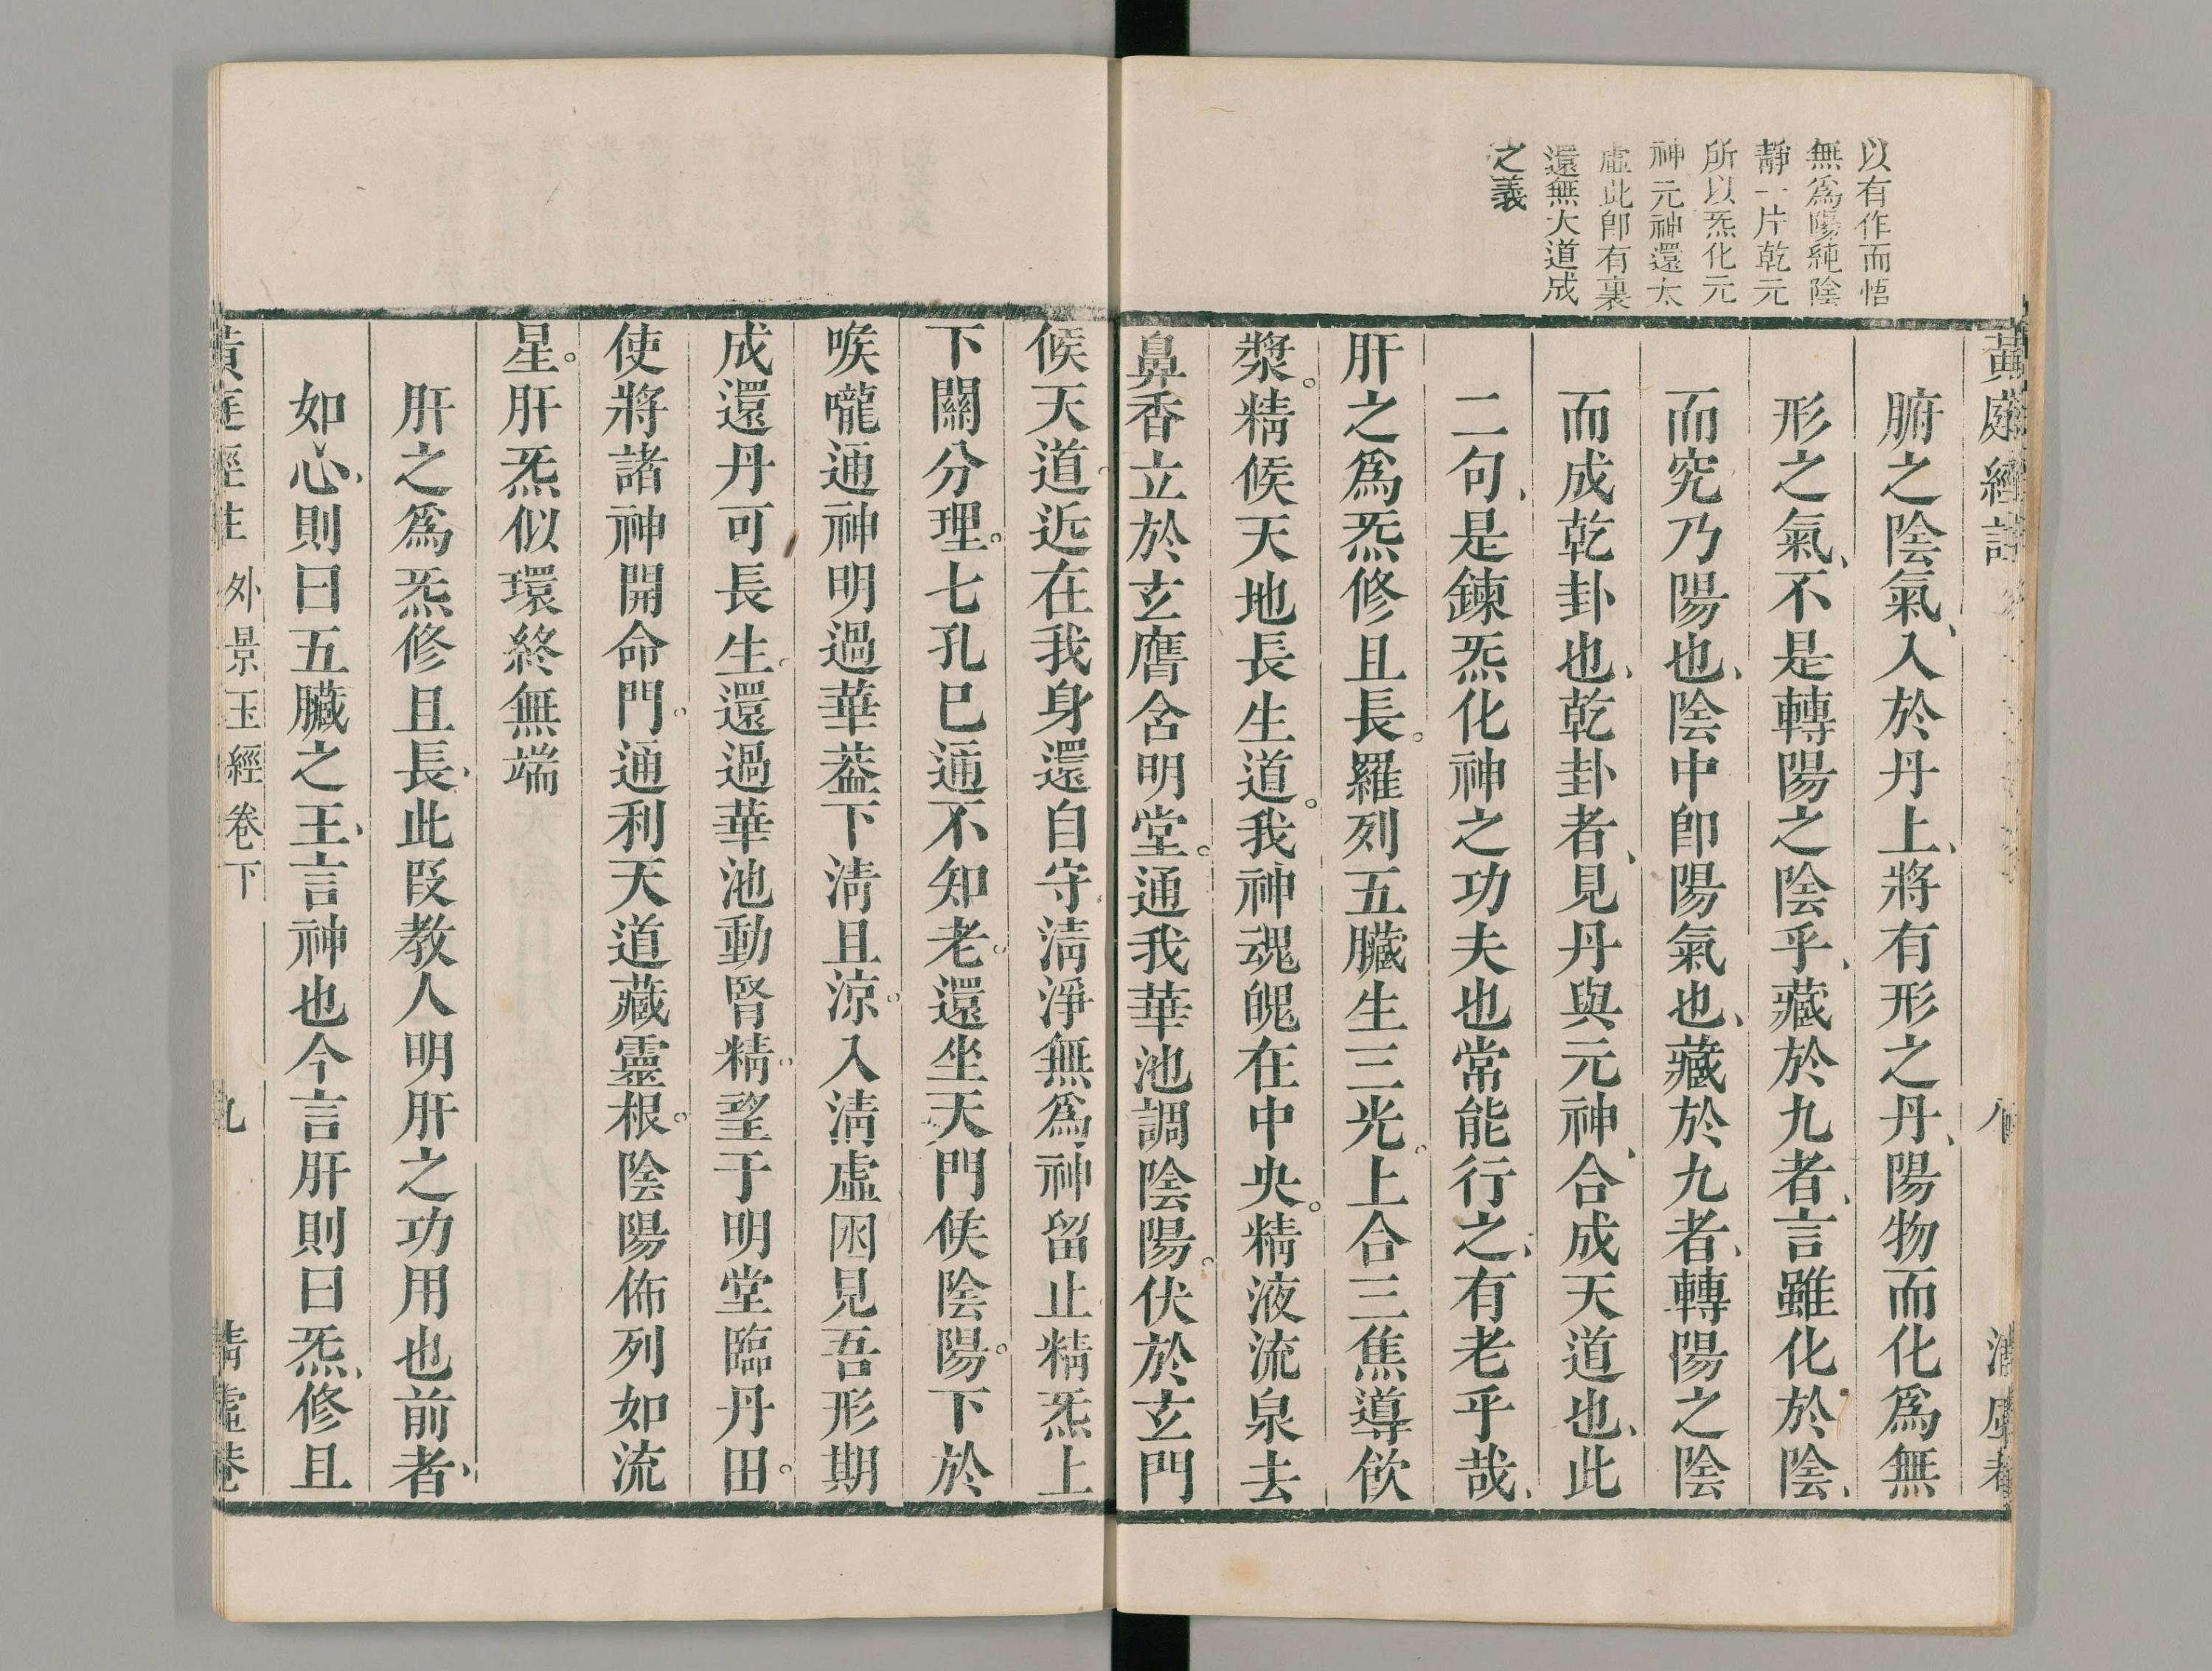 以有作而悟
無爲陽純陰
靜一片乾元
所以炁化元
神元神還太
虛此卽有裏
還無大道成
之義
黃庭經註
腑之陰氣、入於丹上、將有形之丹、陽物而化爲無
形之氣、不是轉陽之陰乎、藏於九者、言雖化於陰、
而究乃陽也、陰中卽陽氣也、藏於九者、轉陽之陰
而成乾卦也、乾卦者、見丹與元神、合成天道也、此
二句、是鍊炁化神之功夫也常能行之、有老乎哉、
肝之爲炁修且長。羅列五臟生三光。上合三焦導飲
漿。精候天地長生道。我神魂魄在中央。精液流泉去
鼻香立於玄膺含明堂。通我華池調陰陽。伏於玄門
候天道。近在我身還自守。淸淨無爲神留止精炁上
下關分理。七孔已通不知老。還坐天門候陰陽。下於
喉嚨通神明過華葢下淸且涼。入淸虛困見吾形期
成還丹可長生。還過華池動腎精。望于明堂臨丹田。
使將諸神開命門。通利天道藏靈根。陰陽佈列如流
星。肝炁似環終無端
肝之爲炁修且長、此段教人明肝之功用也前者、
如心、則曰五臟之王、言神也今言肝則曰炁、修且
黃庭經註 外景玉經卷下 九 淸虛菴